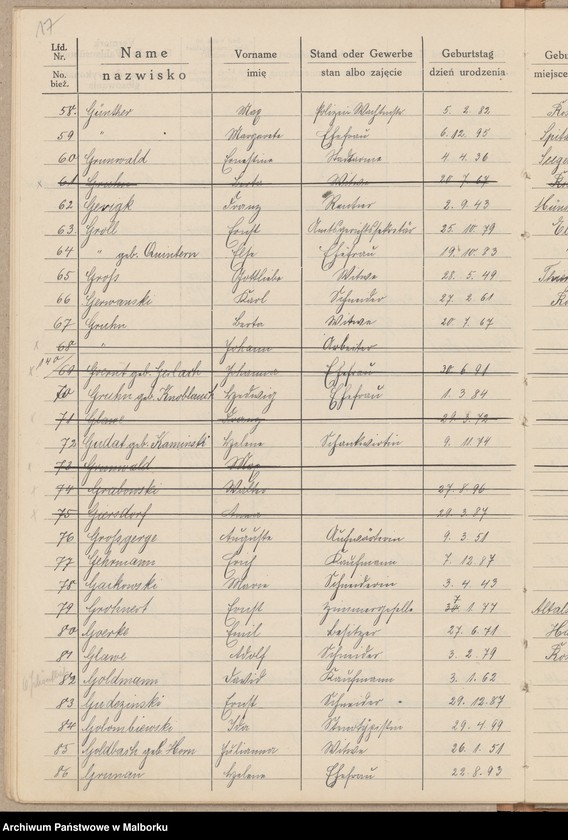 17
Lfd. Nr. Name Vorname Stand oder Gewerbe Geburtstag
No. bież. nazwisko imię stan albo zajęcie dzień urodzenia
58. Günther Max Polizei Wachtmstr 5. 2. 82
59 " Margarete Ehefrau 6. 12. 95
60 Grunwald Ernestine 4. 4. 36
61 Gruhn Berta Witwe 20. 7. 67
62 Franz Rentner 2. 9. 43
63 Groll Ernst Amtsgerichtssekretär 25. 10. 79
64 " geb. Quintern Else Ehefrau 19. 10. 83
65 Groß Gottliebe Witwe 28. 5. 49
66 Germanski Karl Schneider 27. 2. 61
67 Gruhn Berta Witwe 20. 7. 67
68 " Johann Arbeiter
69 geb. Gerlach Johanna Ehefrau 30. 6. 91
70 Gruhn geb. Knoblauch Hedwig Ehefrau 1. 3. 84
71 Glawe Franz 29. 3. 72
72 Gudat geb. Kaminski Helene Schankwirtin 9. 11 74
73 Grunwald Max
74 Grabowski 27. 8. 96
75 Giersdorf Anna 29. 3. 87
76 Großgerge Auguste Aufwärterin 9. 3. 51
77 Gehrmann Erich Kaufmann 7. 12. 87
78 Gackowski Marie Schneiderin 3. 4. 43
79 Grohnert Ernst Zimmergeselle 1. 77
80 Goerke Emil Besitzer 27. 6. 71
81 Glawe Adolf Schneider 3. 2. 79
82 Goldmann David Kaufmann 3. 1. 62
83 Gudezinski Ernst Schneider 29. 12. 87
84 Golombiewski Ida Stenotypistin 29. 4. 99
85 Goldbach geb. Horn Julianna Witwe 26. 1. 51
86 Grunau Helene Ehefrau 22. 8. 93
Archiwum Państwowe w Malborku